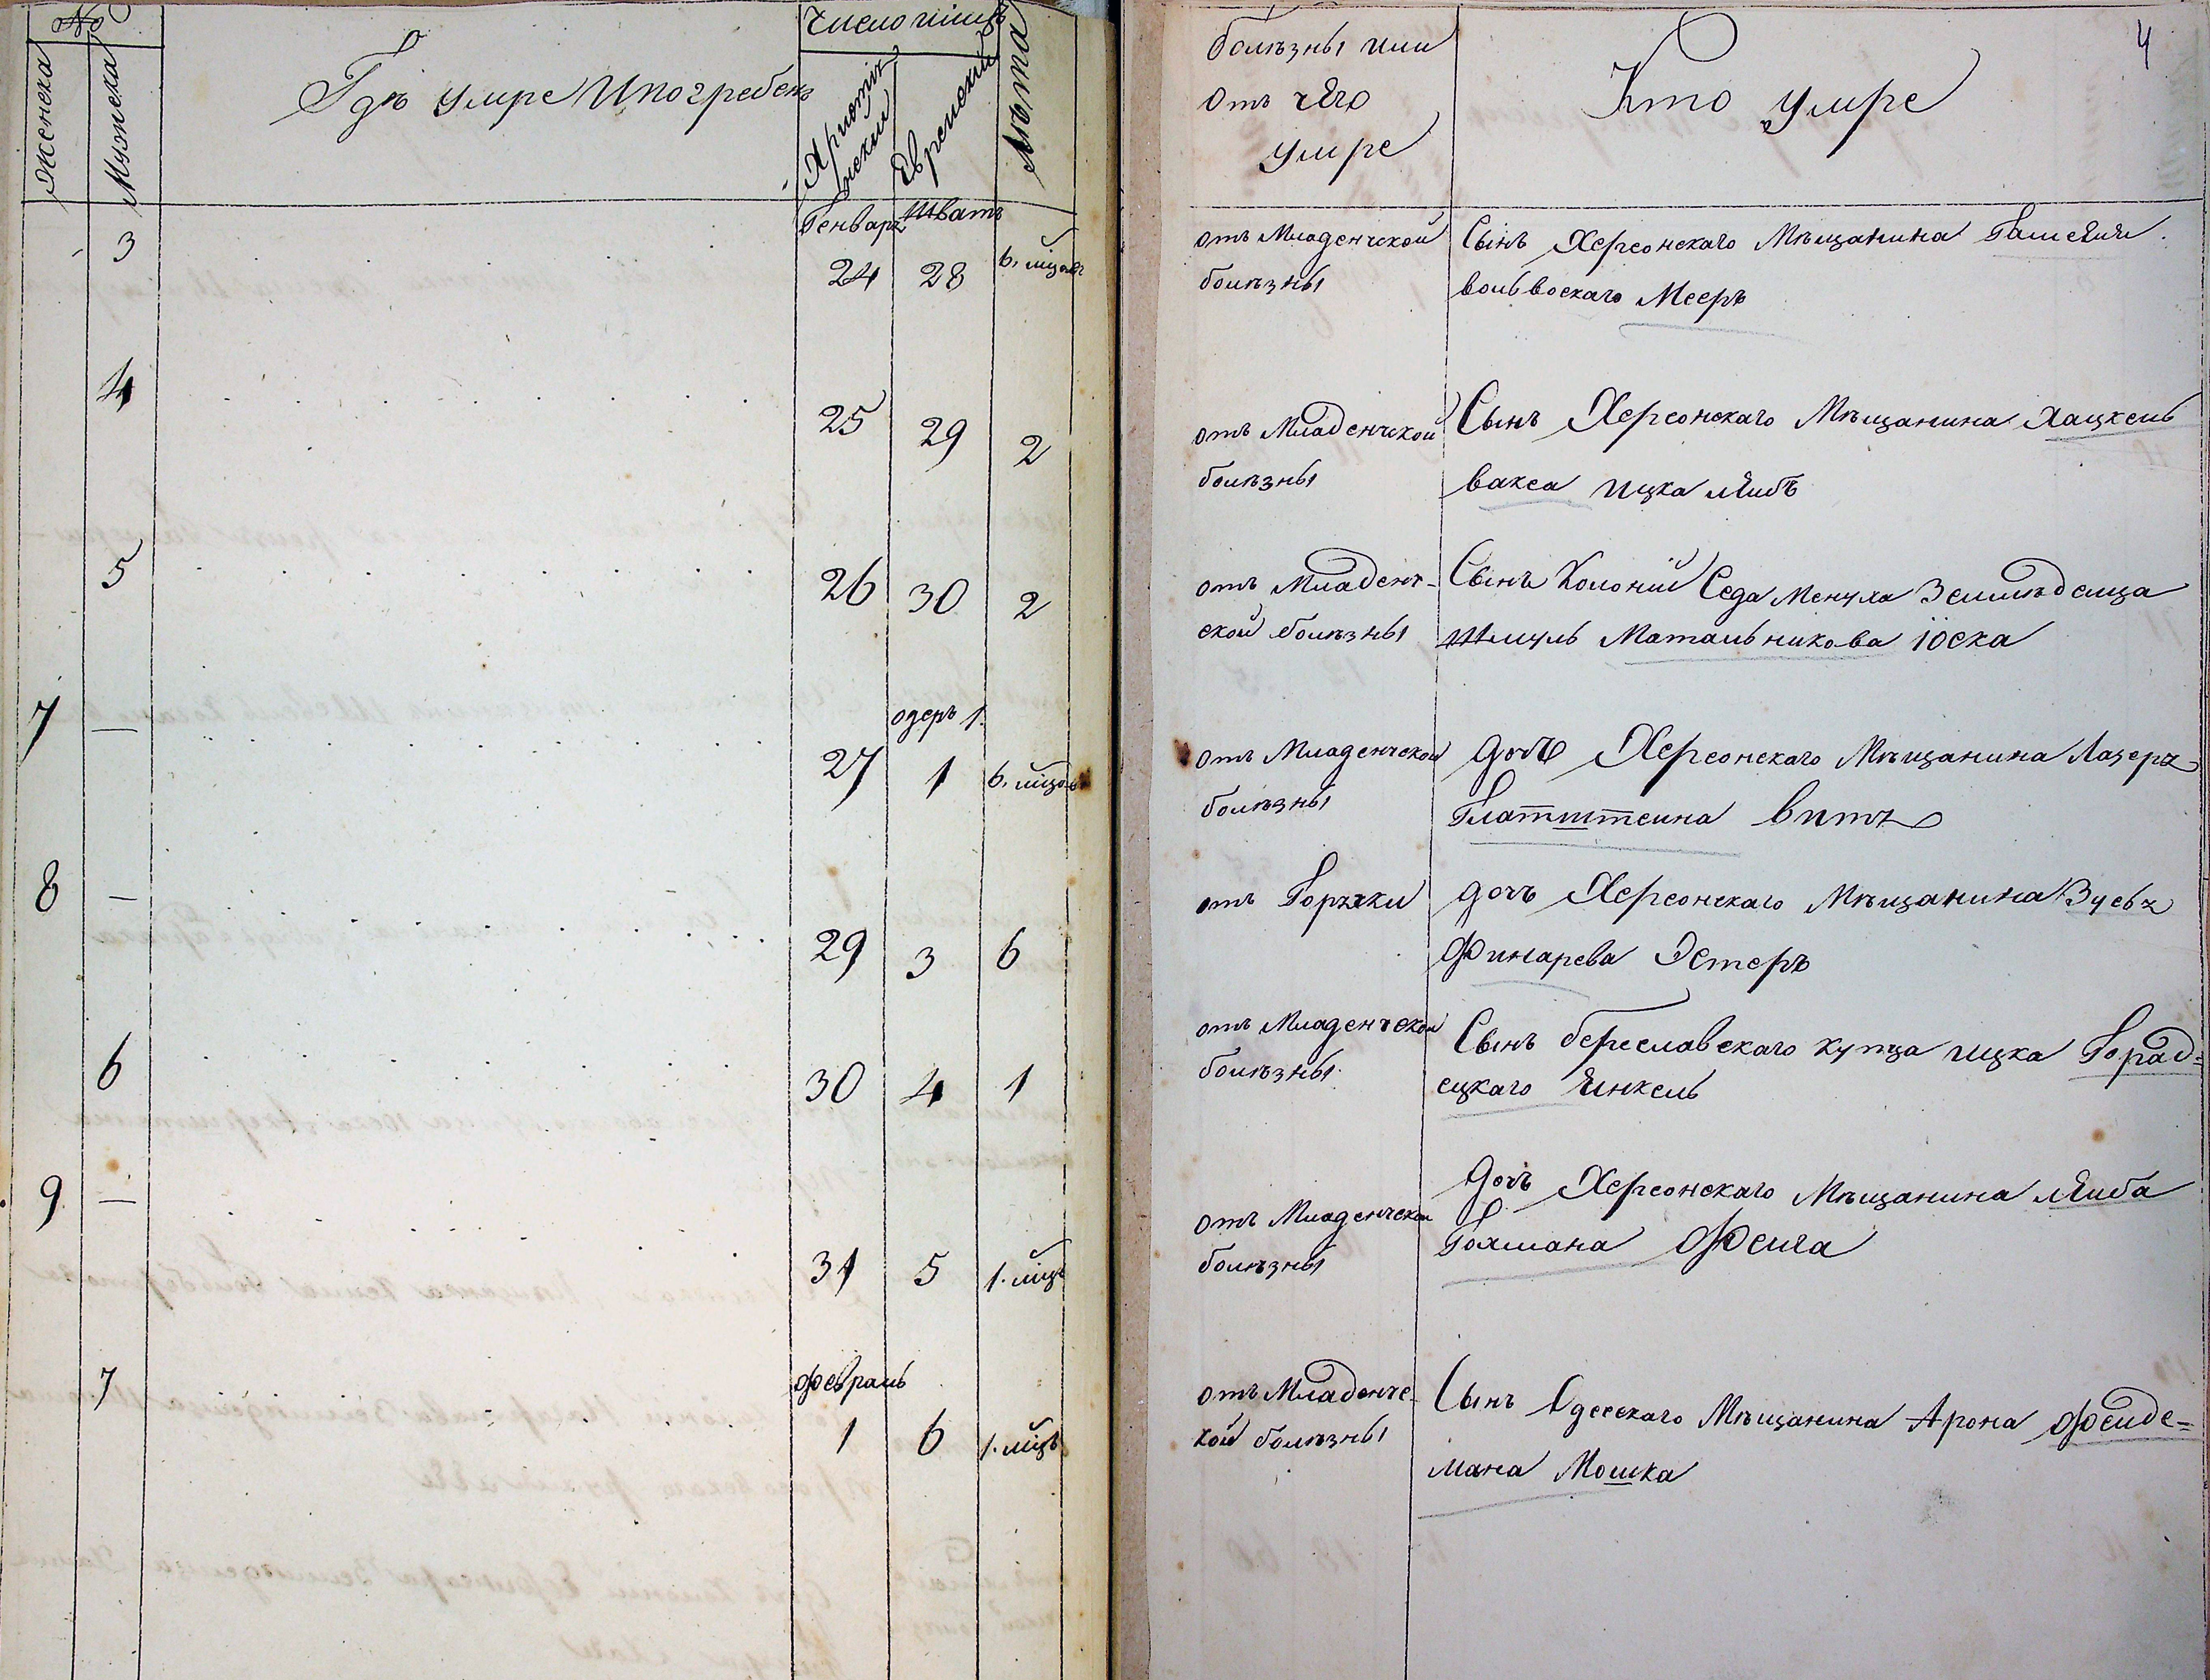 №
Женска
Мужеска
Гдѣ умре И погребенъ
Число и мцъ
Християнский
Еврейский
Лѣта
болѣзны или
Отъ чего
умре
Кто умре
4
Генварь Шватъ
3 24 28 6. мцовъ
отъ Младенческой
болѣзны
Сынъ Херсонскаго Мѣщанина
вольвоскаго Мееръ
4 25 29 2
отъ Младенчской
болѣзны
Сынъ Херсонскаго Мѣщанина Хацкель
вакса Ицка лейбъ
5 26 30 2
отъ Младенч-
ской болѣзны
Сынъ Колоніи Седа Менуха Земледелца
Шмуль Матальникова іоска
одеръ 1.
7 — 27 1 6. мцовъ
отъ Младенческой
болѣзны
дочъ Херсонскаго Мѣщанина Лазеръ
Глатштеина витъ
8 — 29 3 6
отъ Горячки
дочъ Херсонскаго Мѣщанина Зуевъ
Финарева Эстеръ
6 30 4 1
отъ Младенческой
болѣзны
Сынъ береславскаго купца ицка Горад=
ецкаго Янкель
9 — 31 5 1. мцъ
отъ Младенческой
болѣзны
дочъ Херсонскаго Мѣщанина лейба
Гохмана Фейга
февраль
7 1 6 1. мцъ
отъ Младенче-
кой болѣзны
Сынъ Одесскаго Мѣщанина Арона Фелде=
мана Мошка